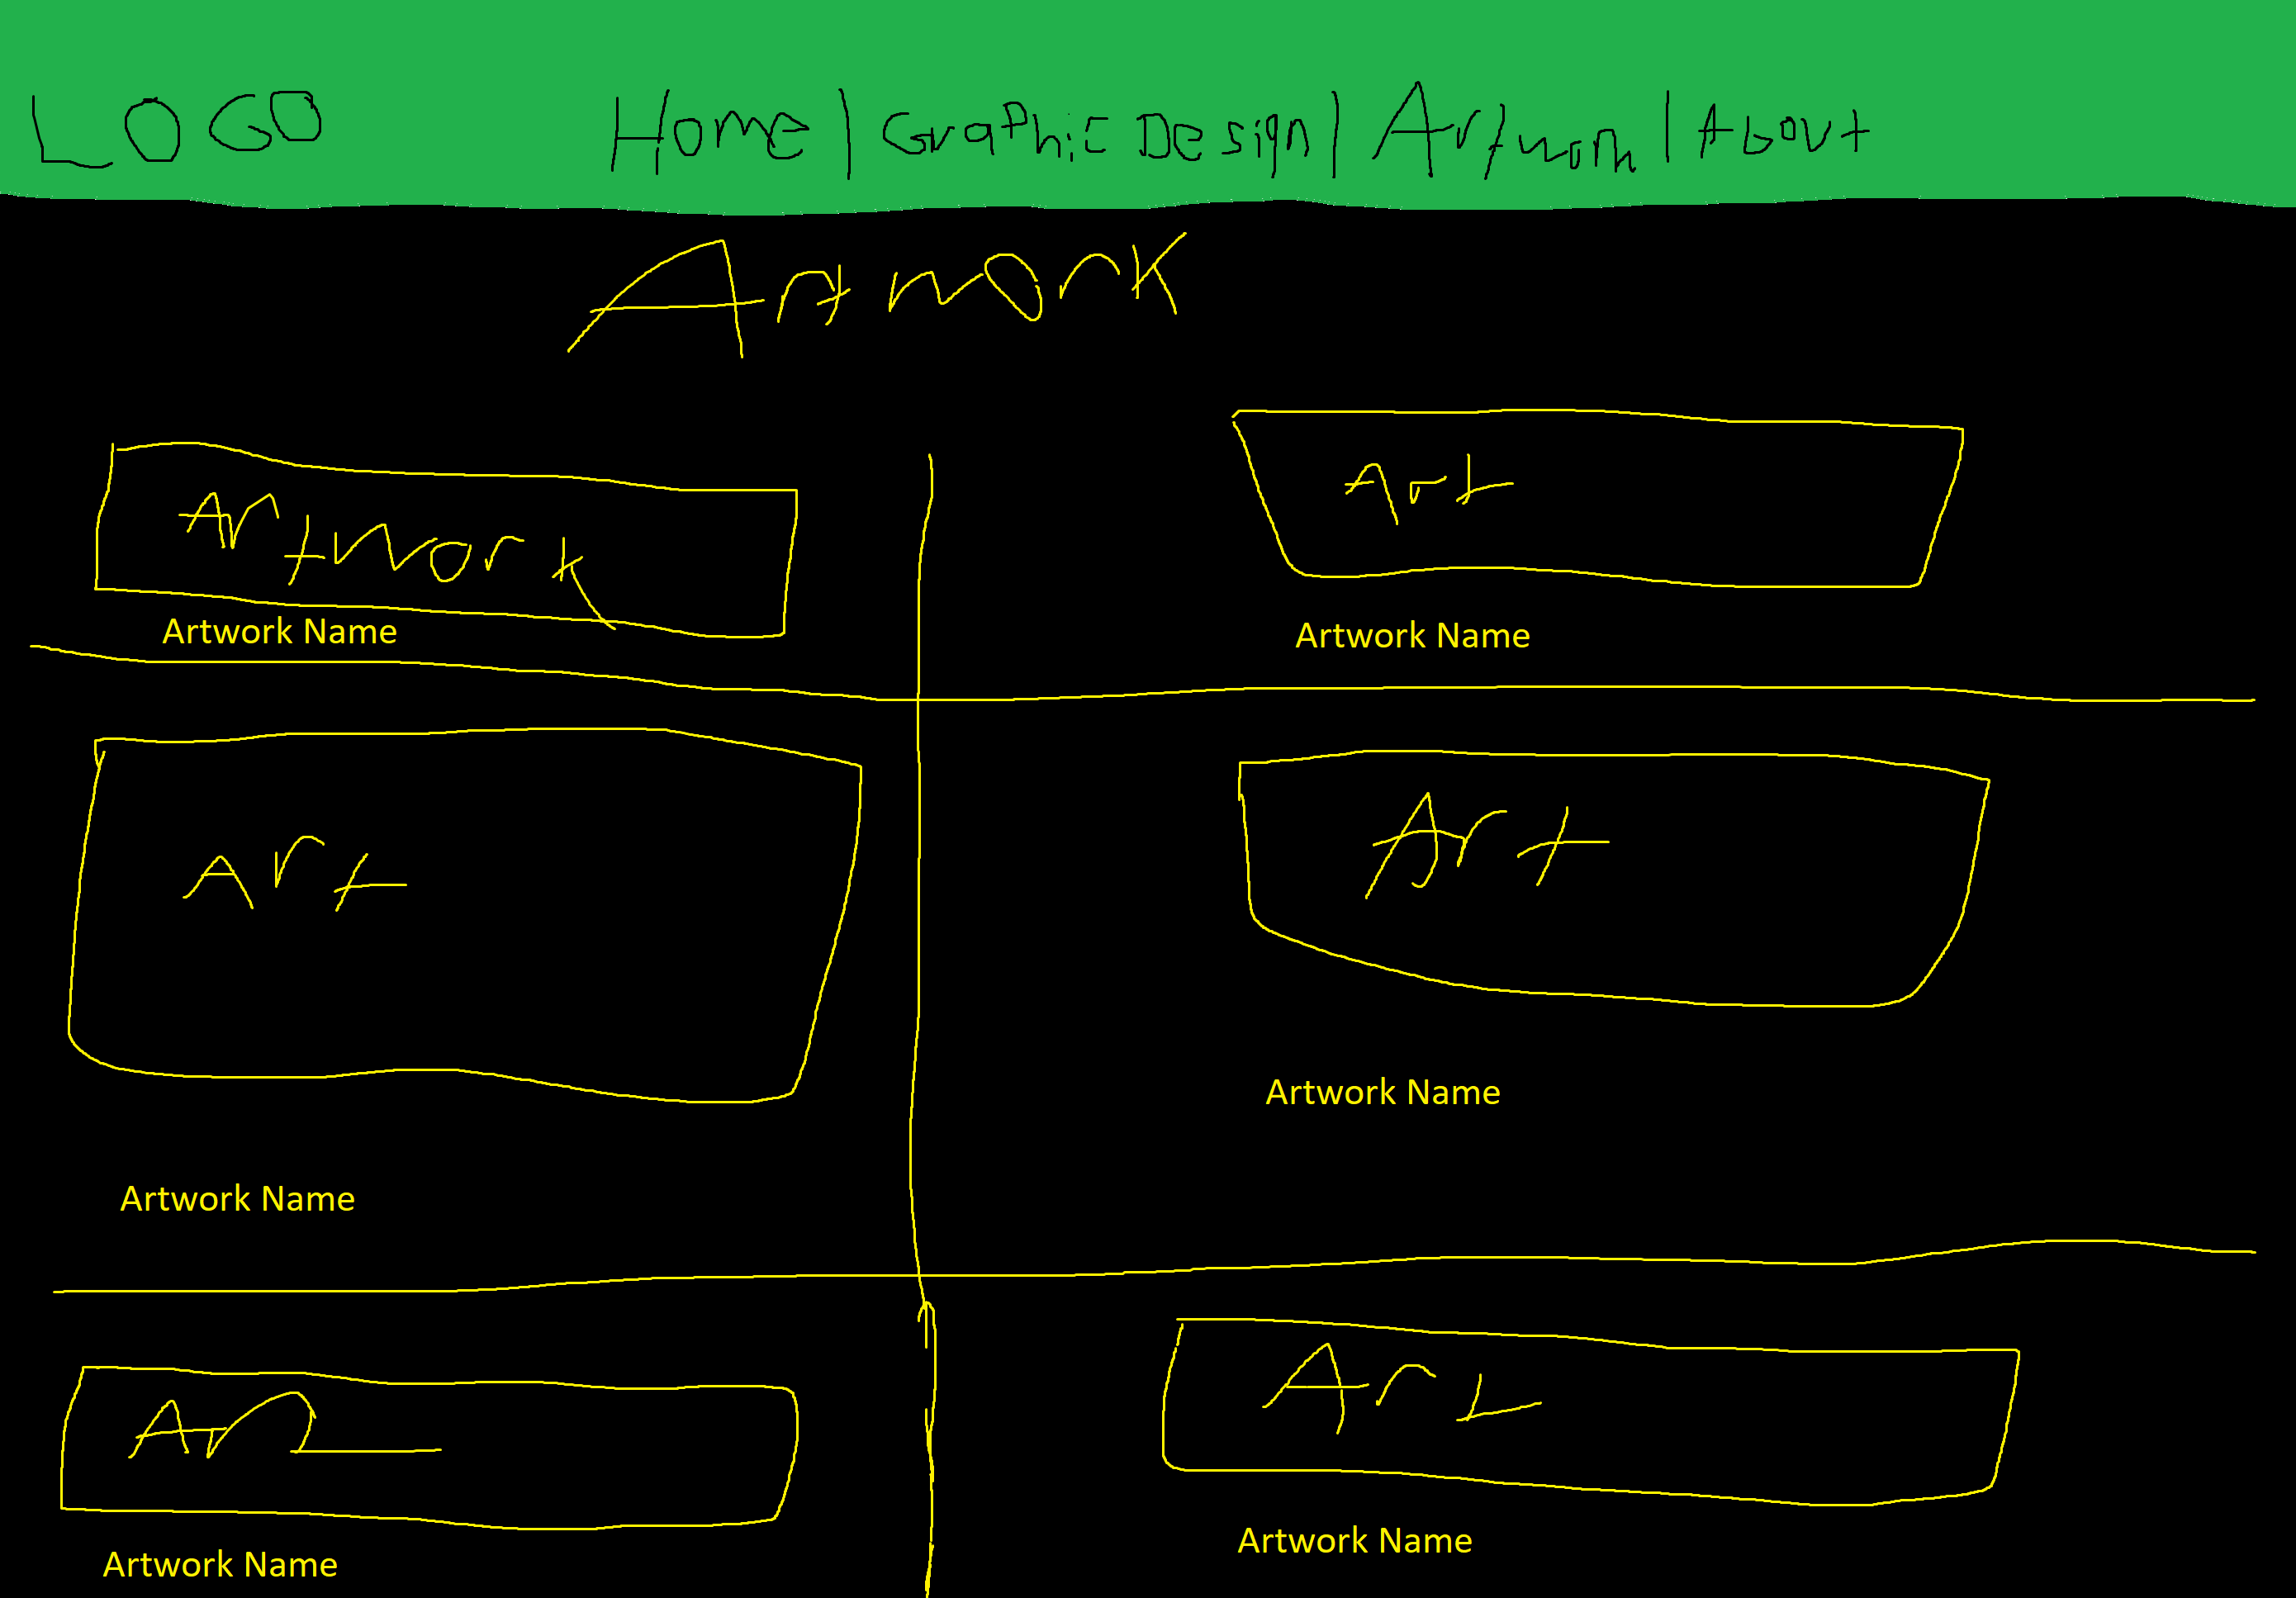 LOGO Home | Graphic Design | Artwork | About
Artwork
Artwork Art
Artwork Name Artwork Name
Art Art
Artwork Name
Artwork Name
Art Art
Artwork Name
Artwork Name